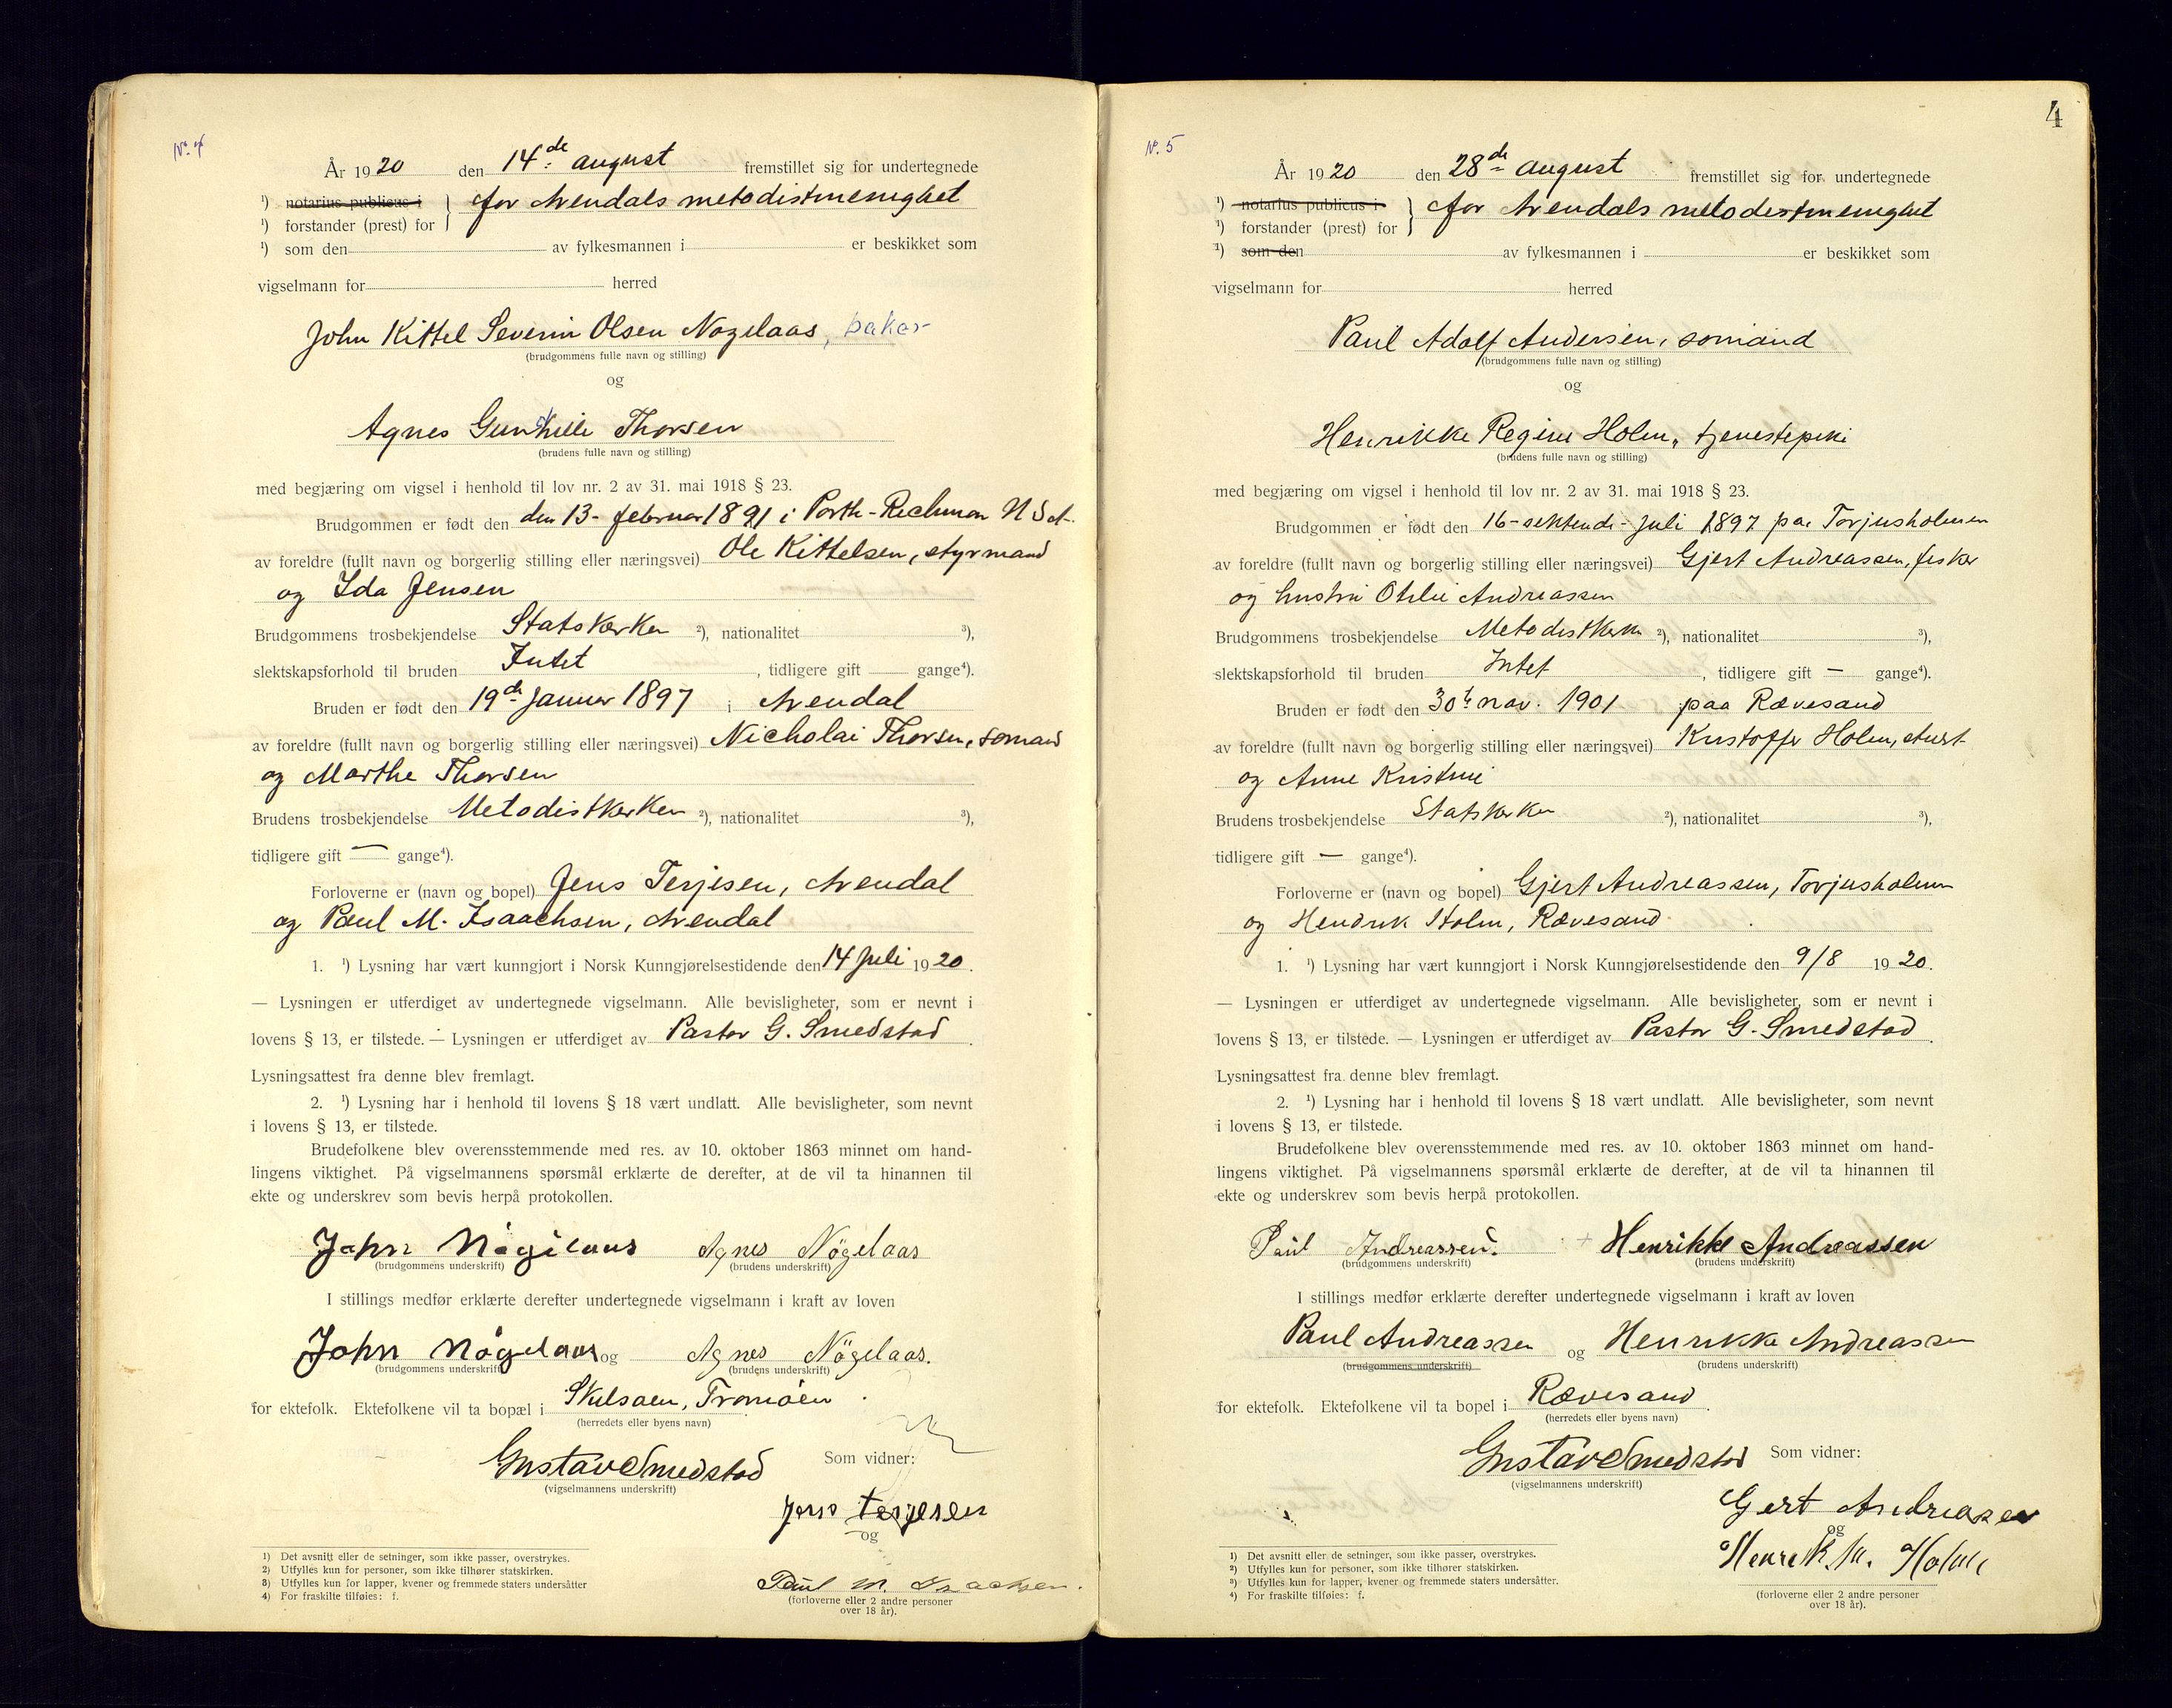 Nº. 4
År 1920 den 14de august fremstillet sig for undertegnede
¹) notarius publicus i } for Arendals metodistmenighet
¹) forstander (prest) for
¹) som den av fylkesmannen i er beskikket som
vigselmann for herred
John Kittel Severin Olsen Nøgelaas, baker
(brudgommens fulle navn og stilling)
og
Agnes Gunhille Thorsen
(brudens fulle navn og stilling)
med begjæring om vigsel i henhold til lov nr. 2 av 31. mai 1918 § 23.
Brudgommen er født den den 13- februar 1891 i Porth-Richmon N S d-
av foreldre (fullt navn og borgerlig stilling eller næringsvei) Ole Kittelsen, styrmand
og Ida Jensen
Brudgommens trosbekjendelse Statskerken ²), nationalitet ³),
slektskapsforhold til bruden Intet, tidligere gift gange⁴).
Bruden er født den 19de januar 1897 i Arendal
av foreldre (fullt navn og borgerlig stilling eller næringsvei) Nicholai Thorsen, sømand
og Marthe Thorsen
Brudens trosbekjendelse Metodistkerken ²), nationalitet ³),
tidligere gift — gange⁴).
Forloverne er (navn og bopel) Jens Terjesen, Arendal
og Paul M. Isaachsen, Arendal
1. ¹) Lysning har vært kunngjort i Norsk Kunngjørelsestidende den 14 juli 1920.
— Lysningen er utferdiget av undertegnede vigselmann. Alle bevisligheter, som er nevnt i
lovens § 13, er tilstede. — Lysningen er utferdiget av Pastor G. Smedstad.
Lysningsattest fra denne blev fremlagt.
2. ¹) Lysning har i henhold til lovens § 18 vært undlatt. Alle bevisligheter, som nevnt
i lovens § 13, er tilstede.
Brudefolkene blev overensstemmende med res. av 10. oktober 1863 minnet om hand-
lingens viktighet. På vigselmannens spørsmål erklærte de derefter, at de vil ta hinannen til
ekte og underskrev som bevis herpå protokollen.
John Nøgelaas Agnes Nögelaas
(brudgommens underskrift) (brudens underskrift)
I stillings medfør erklærte derefter undertegnede vigselmann i kraft av loven
John Nögelaas og Agnes Nögelaas.
(brudgommens underskrift) (brudens underskrift)
for ektefolk. Ektefolkene vil ta bopæl i Skilsøen, Tromöen.
(herredets eller byens navn)
Gustav Smedstad Som vidner:
(vigselmannens underskrift)
Jens Terjesen
og
Paul M. Isaachsen.
(forloverne eller 2 andre personer
over 18 år).
1) Det avsnitt eller de setninger, som ikke passer, overstrykes.
2) Utfylles kun for personer, som ikke tilhører statskirken.
3) Utfylles kun for lapper, kvener og fremmede staters undersåtter
4) For fraskilte tilføies: f.
4
Nº. 5
År 1920 den 28de august fremstillet sig for undertegnede
¹) notarius publicus i } for Arendals metodistmenighet
¹) forstander (prest) for
¹) som den av fylkesmannen i er beskikket som
vigselmann for herred
Paul Adolf Andersen, sømand
(brudgommens fulle navn og stilling)
og
Henrikke Regine Holm, tjenestepike
(brudens fulle navn og stilling)
med begjæring om vigsel i henhold til lov nr. 2 av 31. mai 1918 § 23.
Brudgommen er født den 16-sekstende-juli 1897 paa Torjusholmen
av foreldre (fullt navn og borgerlig stilling eller næringsvei) Gjert Andreassen, fisker
og hustru Otilie Andreassen
Brudgommens trosbekjendelse Metodistkerk ²), nationalitet ³),
slektskapsforhold til bruden Intet, tidligere gift — gange⁴).
Bruden er født den 30te nov. 1901 paa Rævesand
av foreldre (fullt navn og borgerlig stilling eller næringsvei) Kristoffer Holm,
og Anne Kristine
Brudens trosbekjendelse Statskerken ²), nationalitet ³),
tidligere gift — gange⁴).
Forloverne er (navn og bopel) Gjert Andreassen, Torjusholmen
og Hendrik Holm, Rævesand.
1. ¹) Lysning har vært kunngjort i Norsk Kunngjørelsestidende den 9/8 1920.
— Lysningen er utferdiget av undertegnede vigselmann. Alle bevisligheter, som er nevnt i
lovens § 13, er tilstede. — Lysningen er utferdiget av Pastor G. Smedstad.
Lysningsattest fra denne blev fremlagt.
2. ¹) Lysning har i henhold til lovens § 18 vært undlatt. Alle bevisligheter, som nevnt
i lovens § 13, er tilstede.
Brudefolkene blev overensstemmende med res. av 10. oktober 1863 minnet om hand-
lingens viktighet. På vigselmannens spørsmål erklærte de derefter, at de vil ta hinannen til
ekte og underskrev som bevis herpå protokollen.
Paul Andreassen. Henrikke Andreassen
(brudgommens underskrift) (brudens underskrift)
I stillings medfør erklærte derefter undertegnede vigselmann i kraft av loven
Paul Andreassen og Henrikke Andreassen
(brudgommens underskrift) (brudens underskrift)
for ektefolk. Ektefolkene vil ta bopel i Rævesand.
(herredets eller byens navn)
Gustav Smedstad Som vidner:
(vigselmannens underskrift)
Gert Andreasen
og
Henrik M. Holm
(forloverne eller 2 andre personer
over 18 år).
1) Det avsnitt eller de setninger, som ikke passer, overstrykes.
2) Utfylles kun for personer, som ikke tilhører statskirken.
3) Utfylles kun for lapper, kvener og fremmede staters undersåtter.
4) For fraskilte tilføies: f.